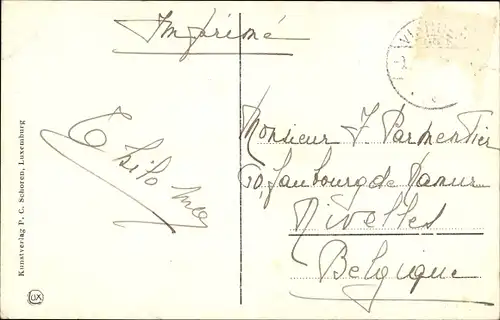 Imprimé
Kunstverlag P. C. Schoren, Luxemburg
Monsieur J. Parmentier
50, faubourg de Namur
Nivelles
Belgique